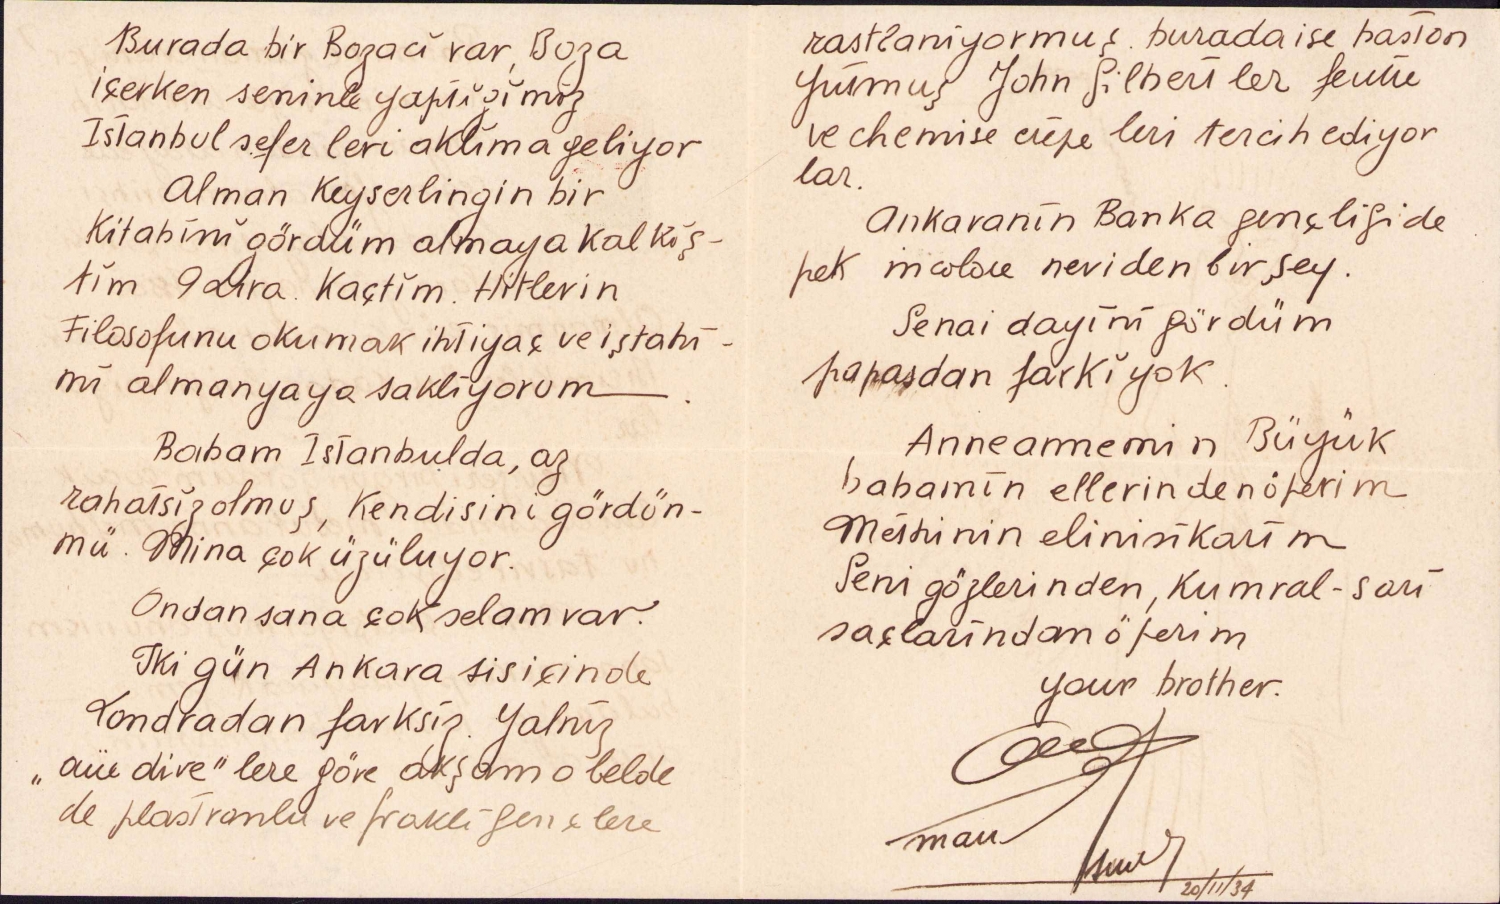 Burada bir Bozacı var, Boza
içerken seninle yaptığımız
İstanbul seferleri aklıma geliyor
Alman Keyserlingin bir
Kitabını gördüm almaya kalkış-
tım 9 lira. Kaçtım. Hitlerin
Filosofunu okumak ihtiyaç ve iştahı-
mı almanyaya saklıyorum.
Babam İstanbulda, az
rahatsız olmuş, Kendisini gördön-
mü. Mina çok üzüluyor.
Ondan sana çok selam var.
İki gün Ankara sis içinde
Londradan farksız. Yalnız
„ dire" lere göre akşam o belde
de plastronlu ve fraklı gençlere
rastlanıyormuş. burada ise baston
yutmuş John Gilbert ler feutre
ve chemise crêpe leri tercih ediyor
lar.
Ankaranın Banka gençliği de
pek incolore neviden bir şey.
Senai dayını gördüm
papasdan farkı yok.
Anneannemin Büyük
babamın ellerinden öperim
elini sıkarım
Seni gözlerinden, Kumral-sarı
saçlarından öperim
your brother.
20/11/34